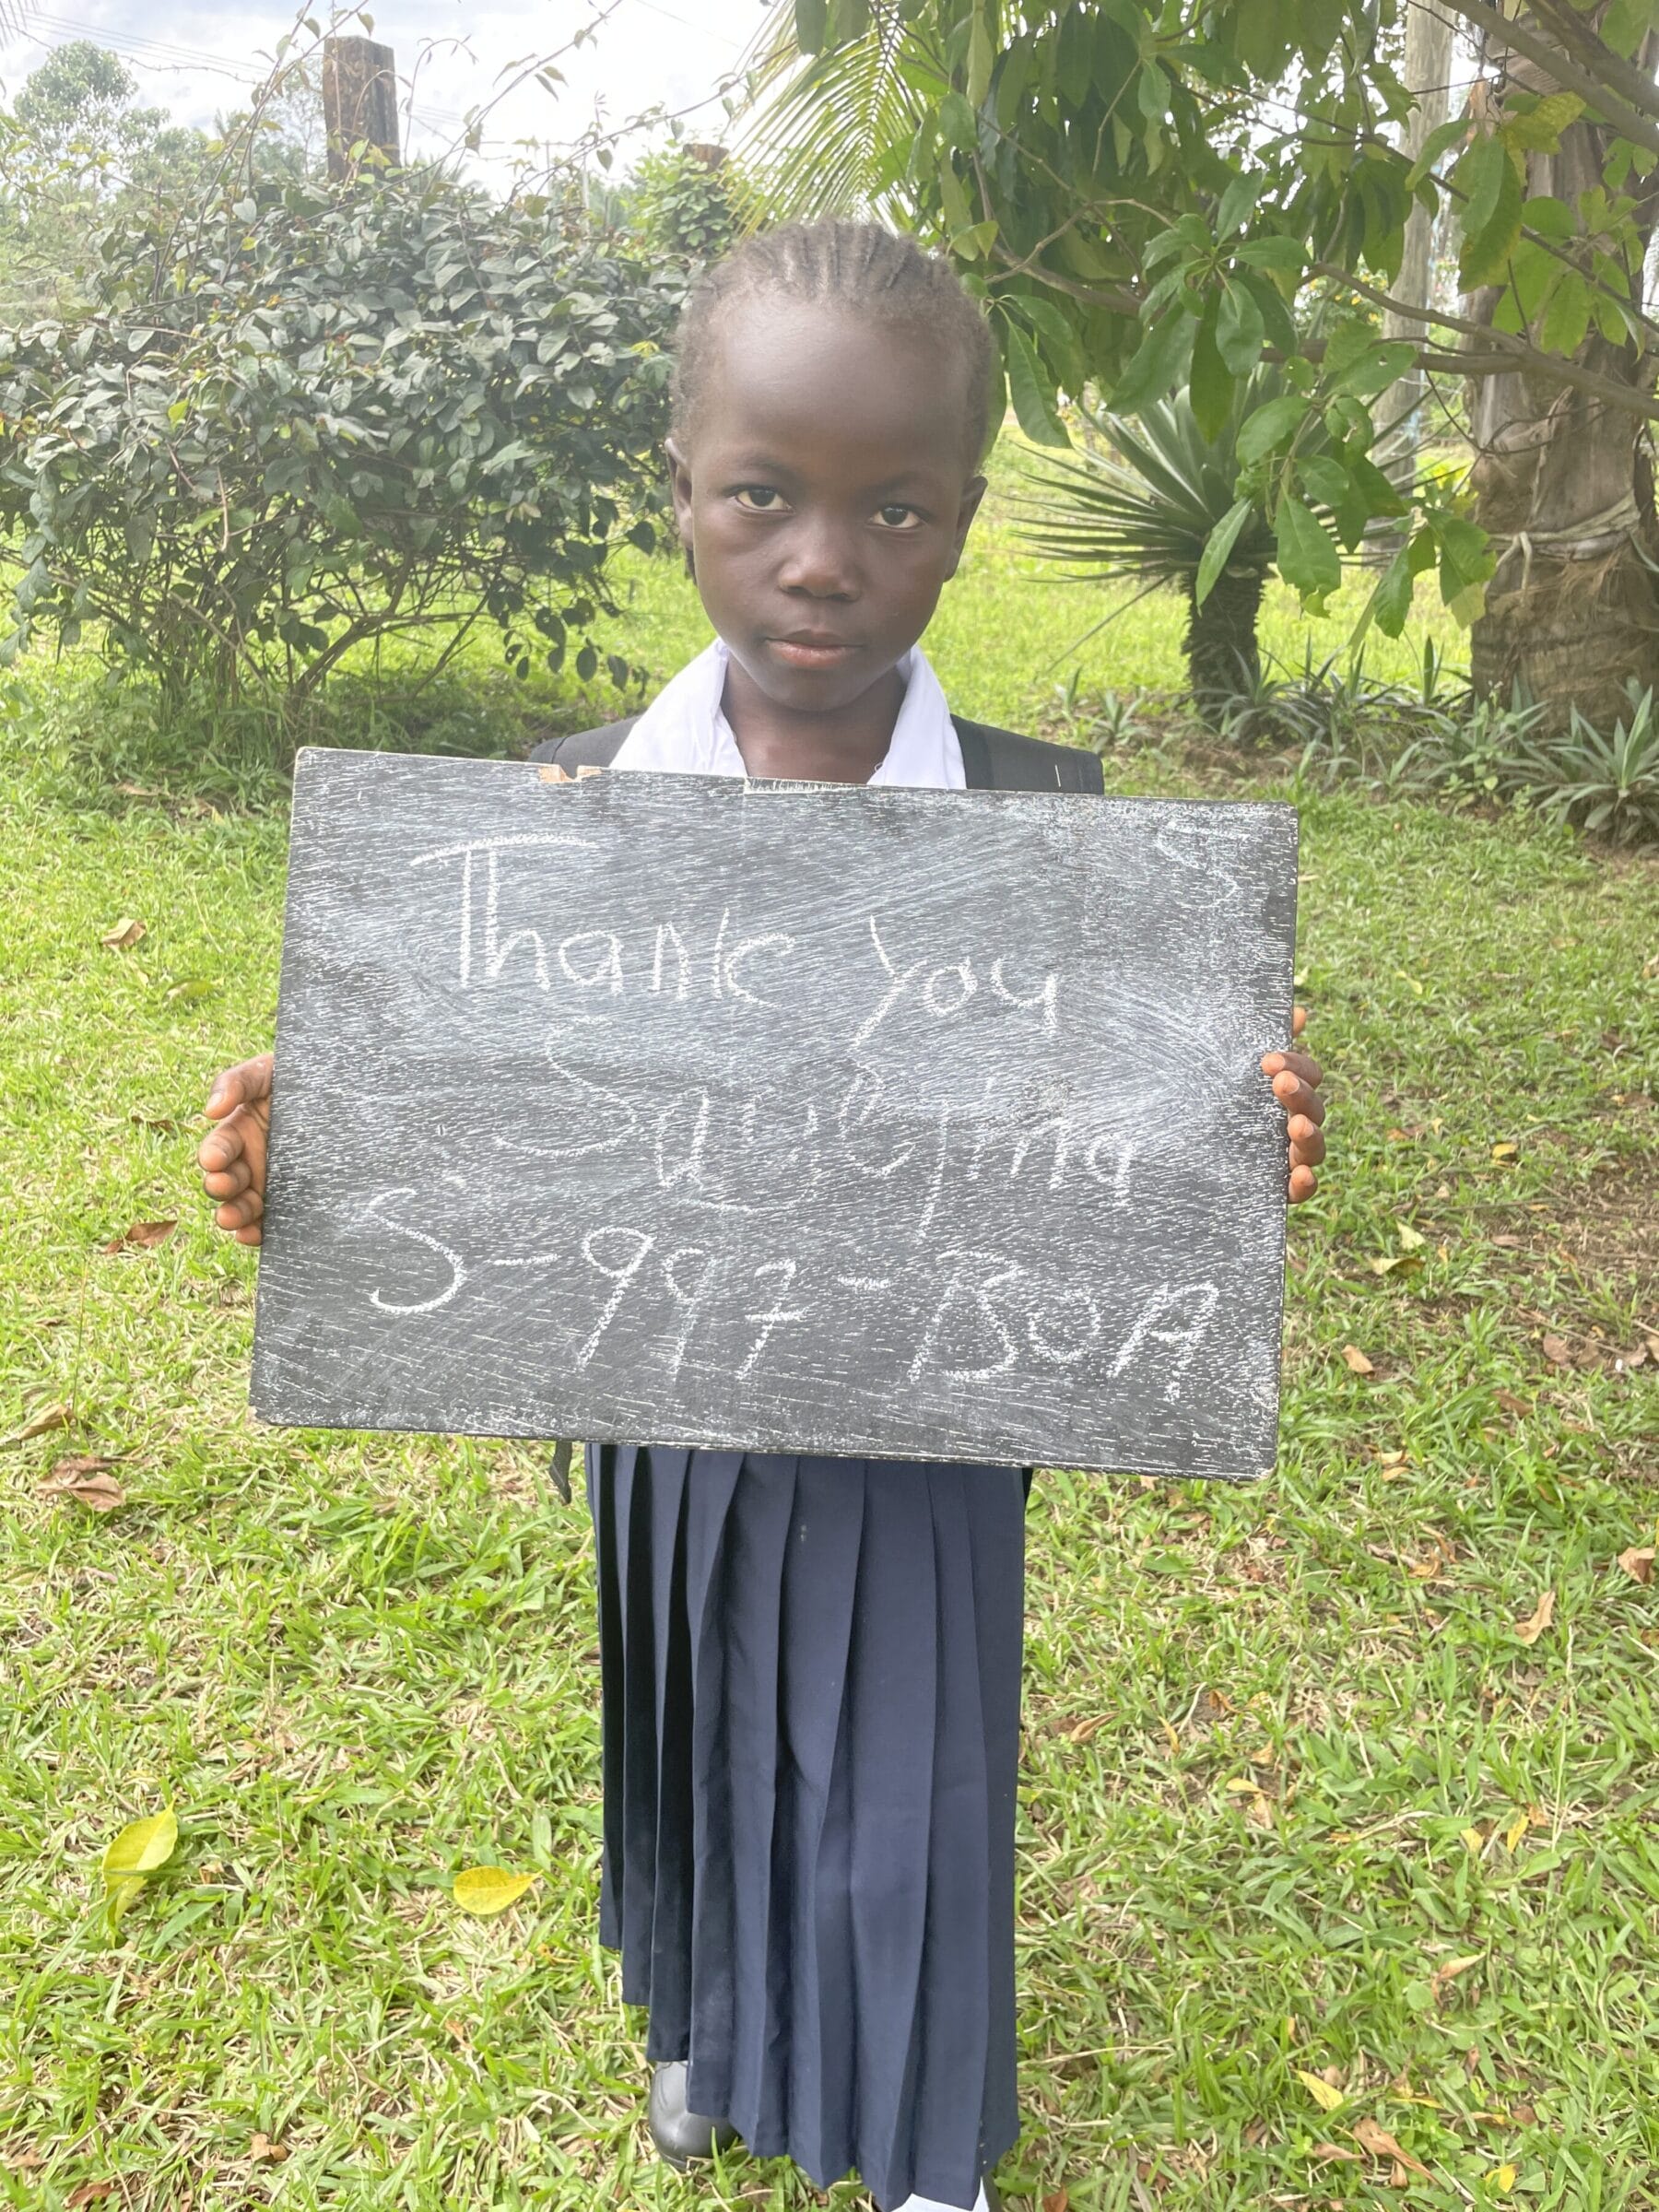 Thank you
S-997-BOA